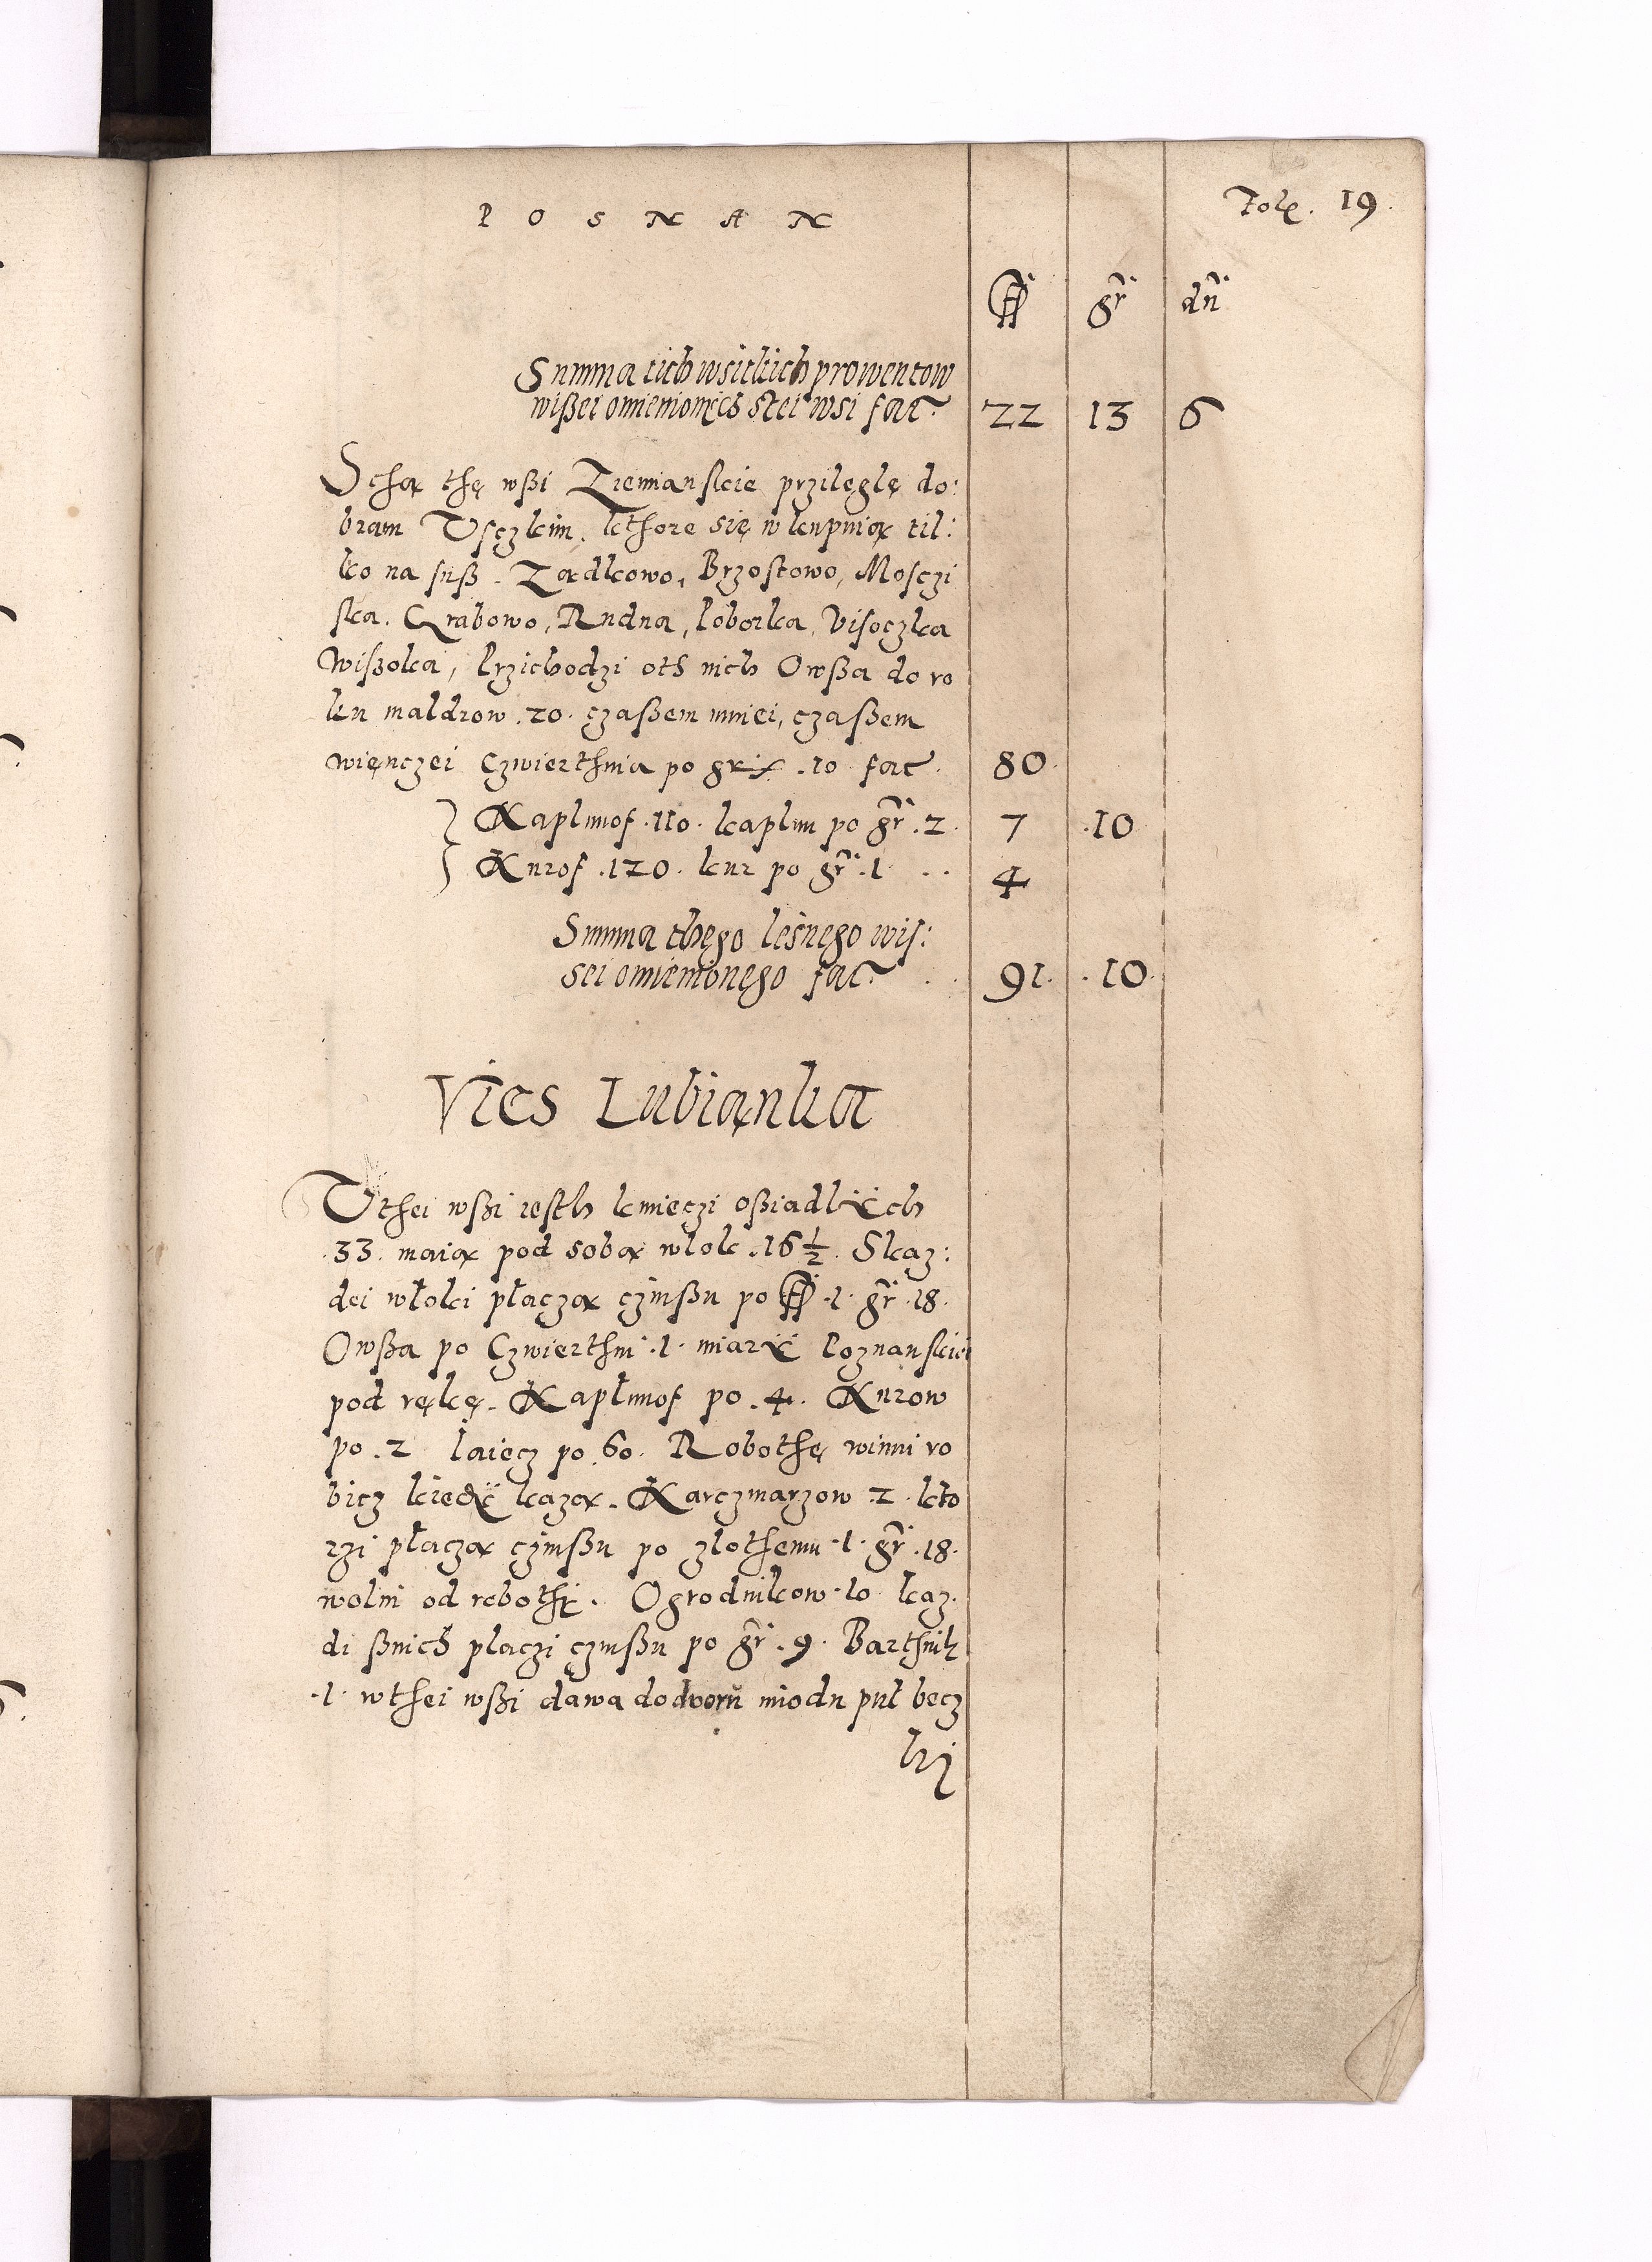 POSNAN
Folę. 19.
ff gr dn
Summa tich wsitkich prowentow
wißei omienionęch stei wsi fac. 22 13 6
Schą thę wßi Ziemianskie przileglę do:
bram Usczkim, kthore się w kupnią til:
ko na suß.Ządkowo, Brzostowo, Mosczi
ska. Grabowo, Rudna, Loborka, Visoczka
Wißoka, Przichodzi oth nich Owßa do ro
ku maldrow .20. czaßem mniei, czaßem
więnczei Czwierthnia po gr .10 fac. 80.
Kaplunof .110. kaplun po gr .2. 7 .10
Kurof .120. kur po gr .1. .. 4
Summa thego leśnego wis:
sei omienionego fac. . 91. .10.
Vies Lubiąnka
Vthei wßi iesth kmieczi oßiadlÿch
.33. maią pod sobą wlok .16 1/2. Skaz:
dei wloki placzą czinßu po ff .1. gr .18.
Owßa po Czwierthni .1. miarÿ Poznanskiei
pod rękę. Kaplunof po .4. Kurow
po .2 Iaiecz po 60. Robothę winni ro
bicz kiedÿ kazą. Karczmarzow .2. kto
rzi placzą czinßu po zlothemu .1. gr .18.
wolni od robothi. Ogrodnikow .10 kaz.
di ßnich placzi czinßu po gr .9. Barthnik
.1. wthei wßi dawa do dworu miodu pul becz
ki